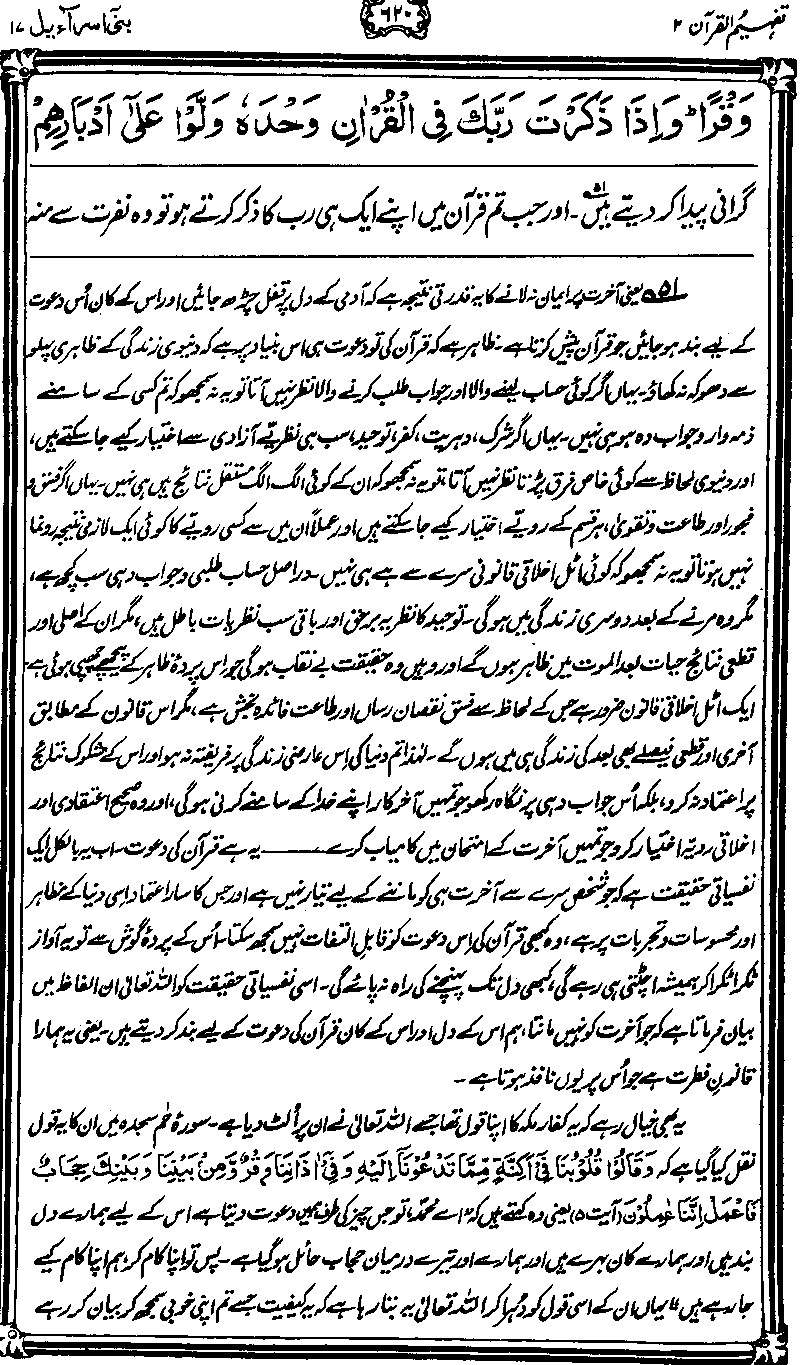 تفہیم القرآن ۲
۶۲۰
بنی اسرآءیل ۱۷
وَقْرًا ؕ وَاِذَا ذَكَرْتَ رَبَّكَ فِی الْقُرْاٰنِ وَحْدَهٗ وَلَّوْا عَلٰۤی اَدْبَارِهِمْ
گرانی پیدا کر دیتے ہیں۵۱۔ اور جب تم قرآن میں اپنے ایک ہی رب کا ذکر کرتے ہو تو وہ نفرت سے منہ
۵۱ یعنی آخرت پر ایمان نہ لانے کا یہ قدرتی نتیجہ ہے کہ آدمی کے دل پر قفل چڑھ جائیں اور اس کے کان اُس دعوت
کے لیے بند ہو جائیں جو قرآن پیش کرتا ہے۔ ظاہر ہے کہ قرآن کی تو دعوت ہی اس بنیاد پر ہے کہ دنیوی زندگی کے ظاہری پہلو
سے دھوکہ نہ کھاؤ۔ یہاں اگر کوئی حساب لینے والا اور جواب طلب کرنے والا نظر نہیں آتا تو یہ نہ سمجھو کہ تم کسی کے سامنے
ذمہ دار و جواب دہ ہو ہی نہیں۔ یہاں اگر شرک، دہریت، کفر، توحید، سب ہی نظریے آزادی سے اختیار کیے جا سکتے ہیں،
اور دنیوی لحاظ سے کوئی خاص فرق پڑتا نظر نہیں آتا، تو یہ نہ سمجھو کہ ان کے کوئی الگ الگ مستقل نتائج ہیں ہی نہیں۔ یہاں اگر فسق و
فجور اور طاعت و تقویٰ، ہر قسم کے رویے اختیار کیے جا سکتے ہیں اور عملاً ان میں سے کسی رویے کا کوئی ایک لازمی نتیجہ رونما
نہیں ہوتا تو یہ نہ سمجھو کہ کوئی اٹل اخلاقی قانون سرے سے ہے ہی نہیں۔ دراصل حساب طلبی و جواب دہی سب کچھ ہے،
مگر وہ مرنے کے بعد دوسری زندگی میں ہوگی۔ توحید کا نظریہ برحق اور باقی سب نظریات باطل ہیں، مگر ان کے اصلی اور
قطعی نتائج حیات بعد الموت میں ظاہر ہوں گے اور وہیں وہ حقیقت بے نقاب ہوگی جو اس پردۂ ظاہر کے پیچھے چھپی ہوئی ہے۔
ایک اٹل اخلاقی قانون ضرور ہے جس کے لحاظ سے فسق نقصان رساں اور طاعت فائدہ بخش ہے، مگر اس قانون کے مطابق
آخری اور قطعی فیصلے بھی بعد کی زندگی ہی میں ہوں گے۔ لہٰذا تم دنیا کی اِس عارضی زندگی پر فریفتہ نہ ہو اور اس کے مشکوک نتائج
پر اعتماد نہ کرو، بلکہ اُس جواب دہی پر نگاہ رکھو جو تمہیں آخر کار اپنے خدا کے سامنے کرنی ہوگی، اور وہ صحیح اعتقادی اور
اخلاقی رویہ اختیار کرو جو تمہیں آخرت کے امتحان میں کامیاب کرے ——— یہ ہے قرآن کی دعوت۔ اب یہ بالکل ایک
نفسیاتی حقیقت ہے کہ جو شخص سرے سے آخرت ہی کو ماننے کے لیے تیار نہیں ہے اور جس کا سارا اعتماد اِسی دنیا کے مظاہر
اور محسوسات و تجربات پر ہے، وہ کبھی قرآن کی اِس دعوت کو قابل التفات نہیں سمجھ سکتا۔ اُس کے پردۂ گوش سے تو یہ آواز
ٹکرا ٹکرا کر ہمیشہ اچٹتی ہی رہے گی، کبھی دل تک پہنچنے کی راہ نہ پائے گی۔ اسی نفسیاتی حقیقت کو اللہ تعالیٰ ان الفاظ میں
بیان فرماتا ہے کہ جو آخرت کو نہیں مانتا، ہم اس کے دل اور اس کے کان قرآن کی دعوت کے لیے بند کر دیتے ہیں۔ یعنی یہ ہمارا
قانونِ فطرت ہے جو اُس پر یوں نافذ ہوتا ہے۔
یہ بھی خیال رہے کہ یہ کفار مکہ کا اپنا قول تھا جسے اللہ تعالیٰ نے ان پر اُلٹ دیا ہے۔ سورۂ حٰم سجدہ میں ان کا یہ قول
نقل کیا گیا ہے کہ وَقَالُوْا قُلُوْبُنَا فِیْۤ اَكِنَّةٍ مِّمَّا تَدْعُوْنَاۤ اِلَیْهِ وَفِیْۤ اٰذَانِنَا وَقْرٌ وَّمِنْۢ بَیْنِنَا وَبَیْنِكَ حِجَابٌ
فَاعْمَلْ اِنَّنَا عٰمِلُوْنَ (آیت ۵) یعنی وہ کہتے ہیں کہ "اے محمدؐ، تو جس چیز کی طرف ہمیں دعوت دیتا ہے اس کے لیے ہمارے دل
بند ہیں اور ہمارے کان بہرے ہیں اور ہمارے اور تیرے درمیان حجاب حائل ہو گیا ہے۔ پس تو اپنا کام کر، ہم اپنا کام کیے
جا رہے ہیں"۔ یہاں ان کے اسی قول کو دُہرا کر اللہ تعالیٰ یہ بتا رہا ہے کہ یہ کیفیت جسے تم اپنی خوبی سمجھ کر بیان کر رہے